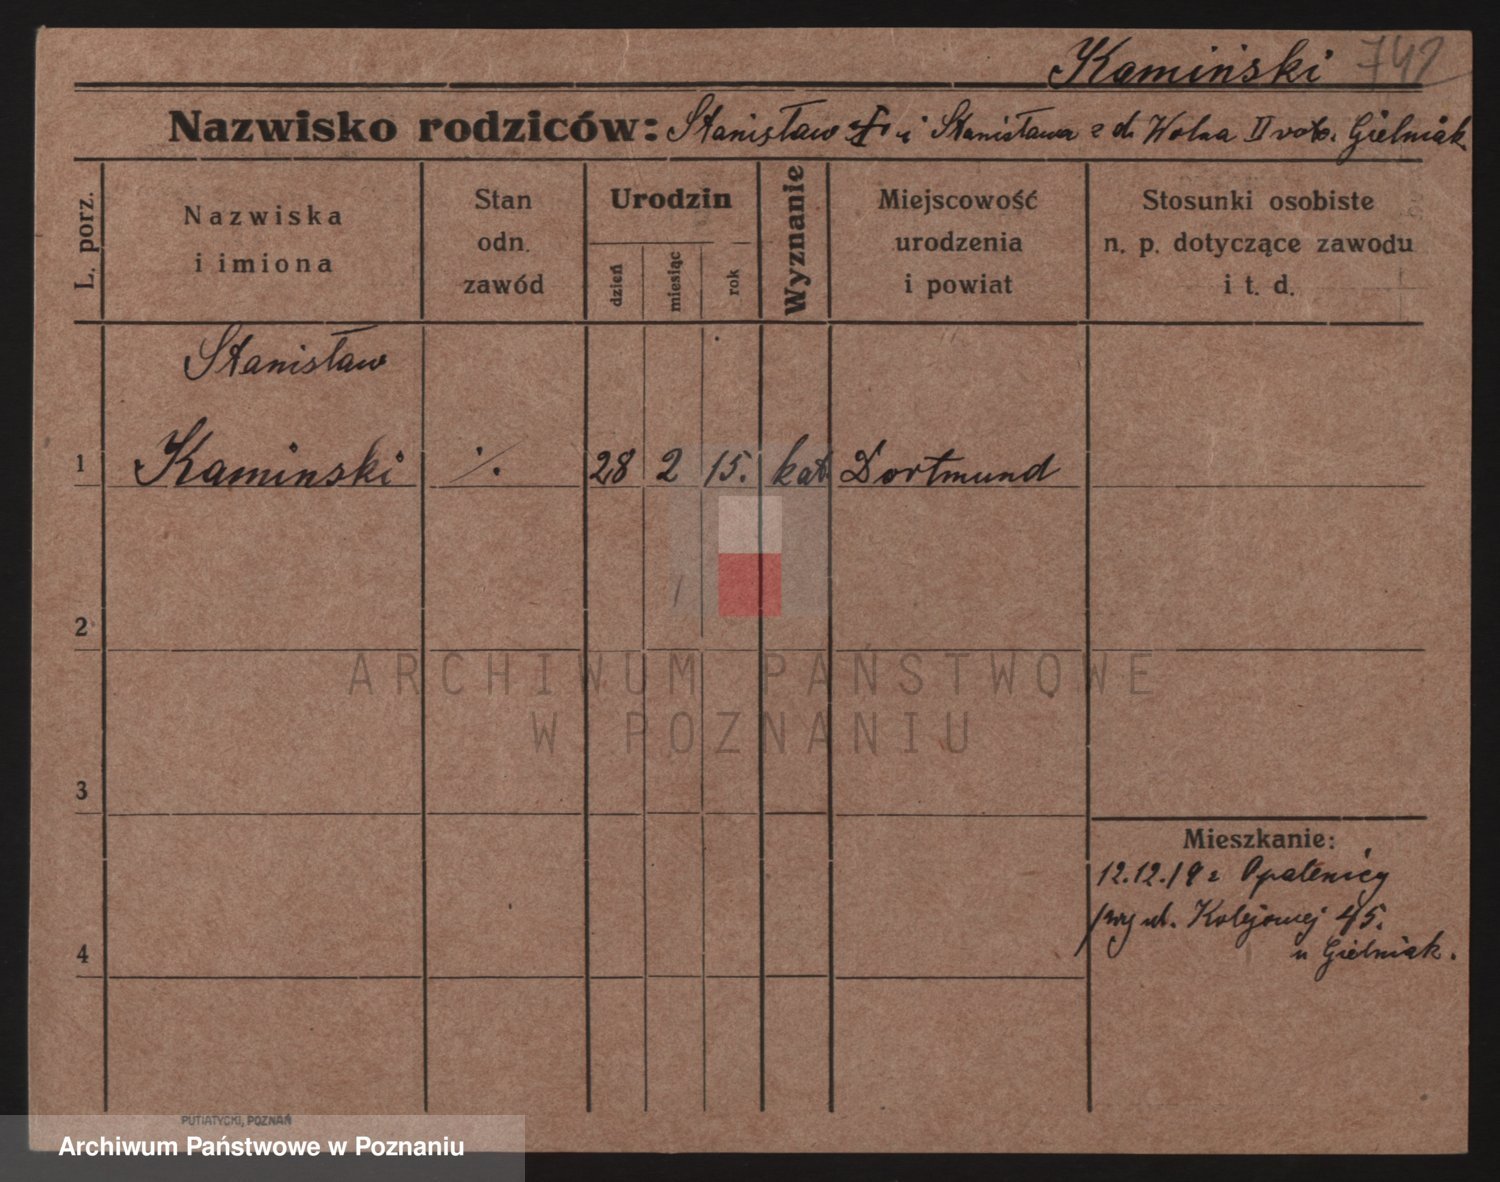 Kamiński 742
Nazwisko rodziców: Stanisław + i Stanisława z d. Wolna II voto. Gielniak
L. porz.
Nazwiska
i imiona
Stan
odn.
zawód
Urodzin
dzień
miesiąc
rok
Wyznanie
Miejscowość
urodzenia
i powiat
Stosunki osobiste
n. p. dotyczące zawodu
i t. d.
Stanisław
1 Kaminski ·/. 28 2 15. kat Dortmund
2
ARCHIWUM PAŃSTWOWE
W POZNANIU
3
Mieszkanie:
12.12.19 z Opalenicy
przy ul. Kolejowej 45.
u Gielniak.
4
PUTIATYCKI, POZNAŃ
Archiwum Państwowe w Poznaniu